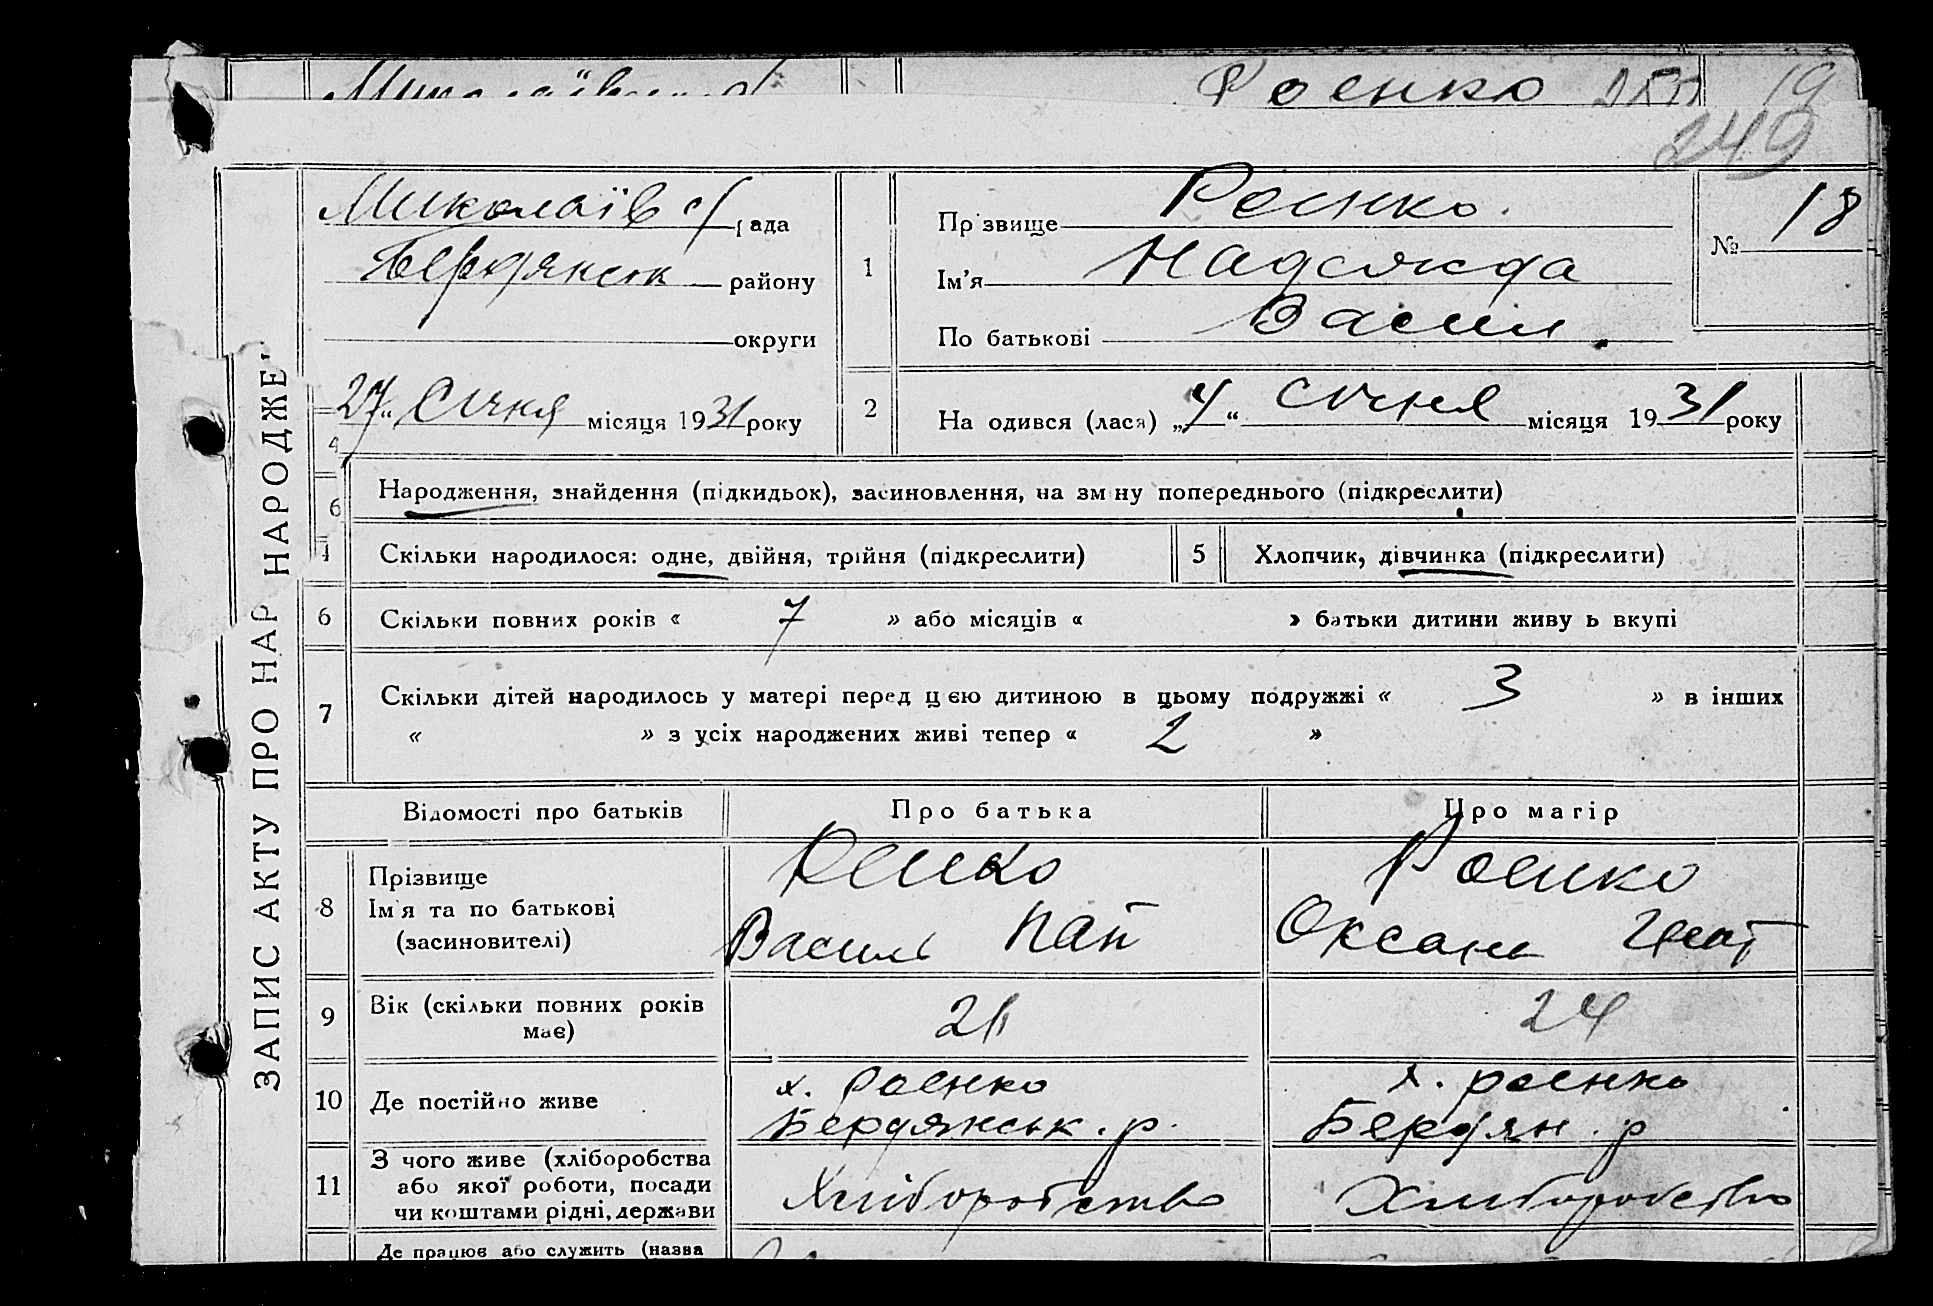 Роєнко 19
249
Миколаїв с/рада
Бердянськ району
округи
27 „ Січня місяця 1931 року
1
Прізвище Роєнко.
Ім’я Надежда
По батькові Васил.
№ 18
2
На одився (лася) „4“ січня місяця 1931 року
ЗАПИС АКТУ ПРО НАР НАРОДЖЕ
4
6
Народження, знайдення (підкидьок), засиновлення, на зм ну попереднього (підкреслити)
4 Скільки народилося: одне, двійня, трійня (підкреслити)
5 Хлопчик, дівчинка (підкреслити)
6 Скільки повних років « 7 » або місяців « » батьки дитини живу ь вкупі
7 Скільки дітей народилось у матері перед цією дитиною в цьому подружжі « 3 » в інших
« » з усіх народжених живі тепер « 2 »
Відомості про батьків Про батька Про матір
8 Прізвище
Ім’я та по батькові
(засиновителі)
Роєнко
Василь Пап
Роєнко
Оксана Гнат
9 Вік (скільки повних років
має)
24
10 Де постійно живе
х. Роєнко
Бердянськ. р.
х. Роєнко
Бердян. р
11 З чого живе (хліборобства
або якої роботи, посади
чи коштами рідні, держави
Хліборобство
Хліборобство
Де працює або служить (назва